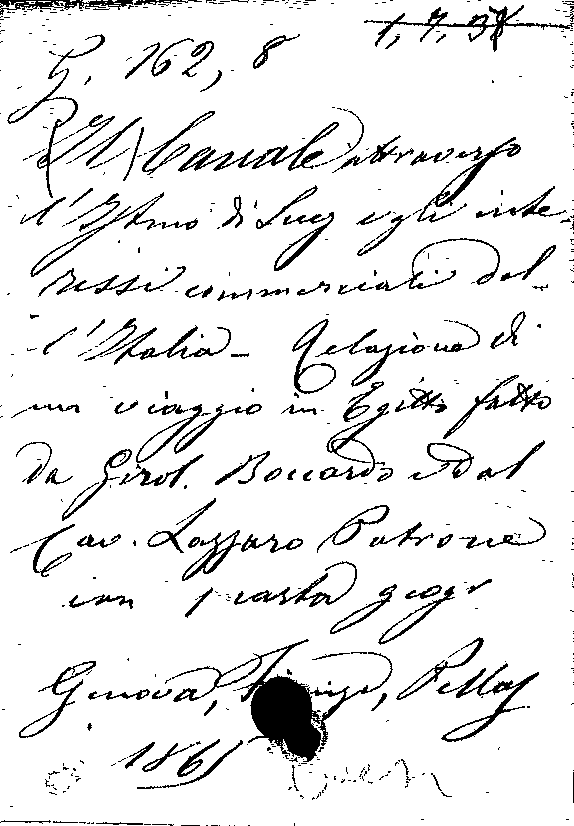 1, 7, 38
G. 162, 8
(Il) Canale attraverso
l'Istmo di Suez e gli inte-
ressi commerciali del-
l'Italia - Relazione di
un viaggio in Egitto fatto
da Girol. Boccardo e dal
Cav. Lazzaro Patrone
con 1 carta geogr
Genova, Firenze, Pellas
1865